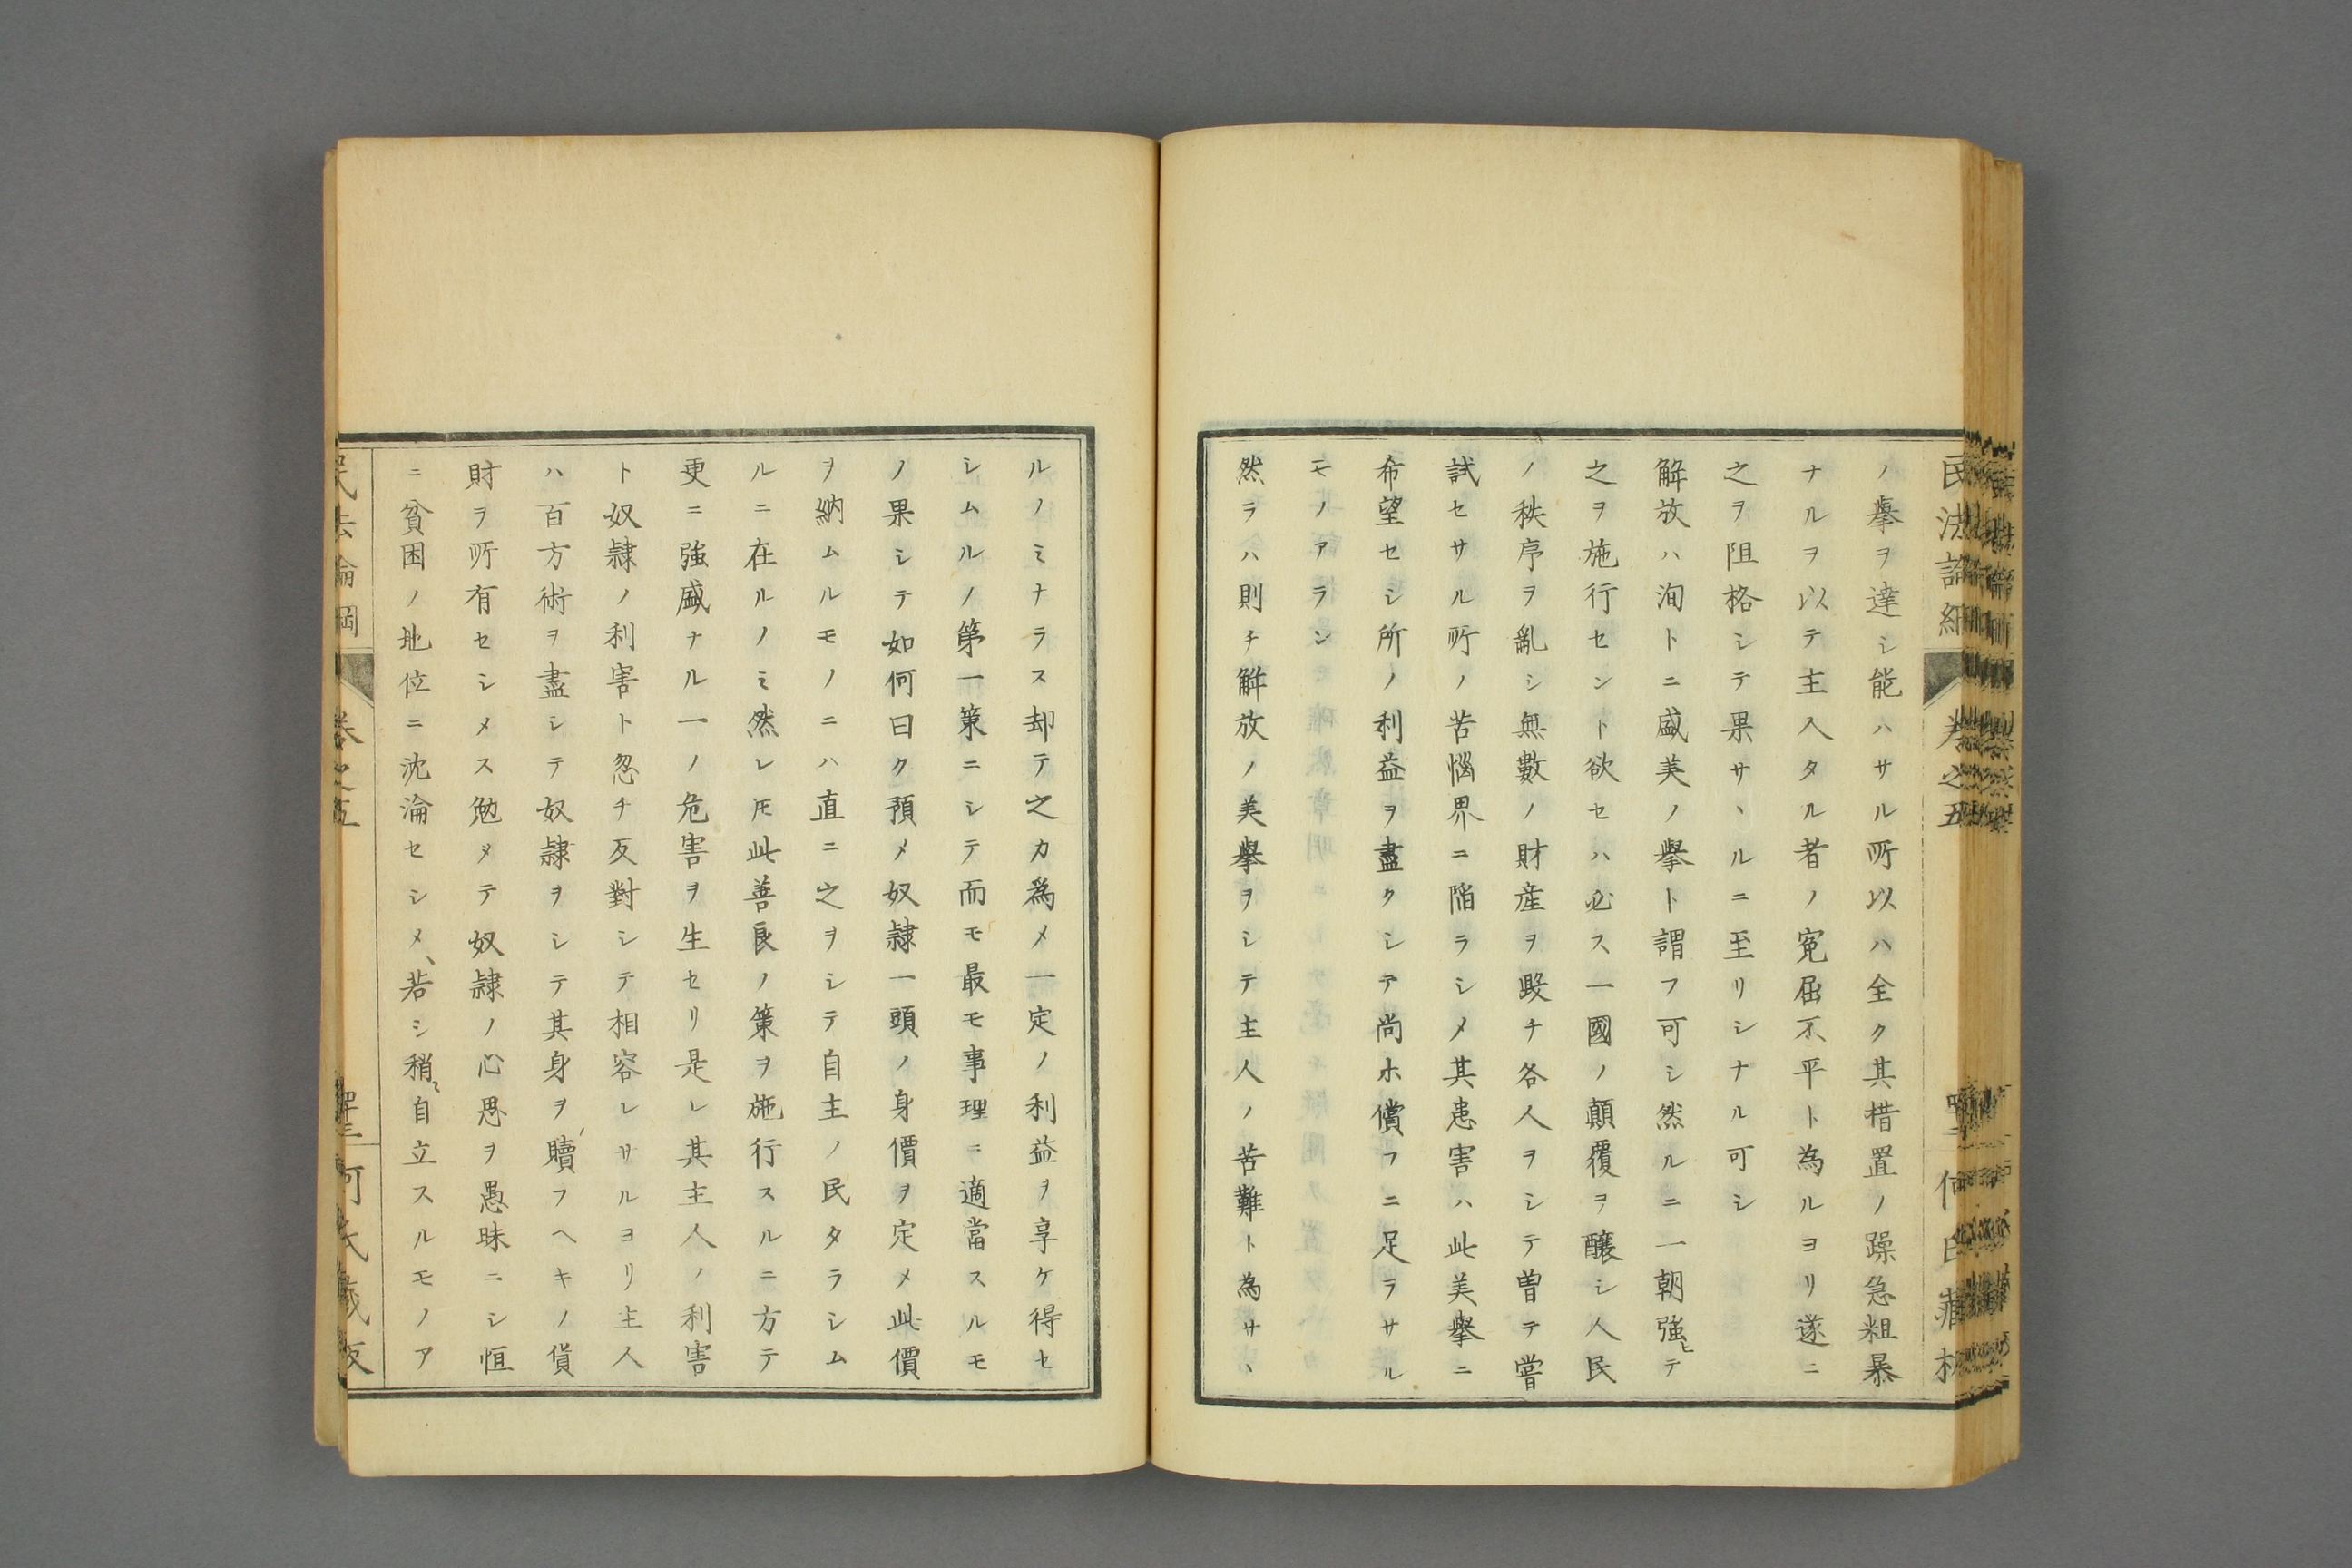 民法論綱 卷之五 何氏藏板
ノ擧ヲ達シ能ハサル所以ハ全ク其措置ノ躁急粗暴
ナルヲ以テ主人タル者ノ寃屈不平ト為ルヨリ遂ニ
之ヲ阻格シテ果サヽルニ至リシナル可シ
解放ハ洵トニ盛美ノ擧ト謂フ可シ然ルニ一朝強ヒテ
之ヲ施行セント欲セハ必ス一國ノ顛覆ヲ醸シ人民
ノ秩序ヲ亂シ無數ノ財産ヲ毀チ各人ヲシテ曽テ嘗
試セサル所ノ苦惱界ニ陷ラシメ其患害ハ此美擧ニ
希望セシ所ノ利益ヲ盡クシテ尚ホ償フニ足ラサル
モノアラン
然ラハ則チ解放ノ美擧ヲシテ主人ノ苦難ト為サヽ
ルノミナラス却テ之カ爲メ一定ノ利益ヲ享ケ得セ
シムルノ第一策ニシテ而モ最モ事理ニ適當スルモ
ノ果シテ如何曰ク預メ奴隷一頭ノ身價ヲ定メ此價
ヲ納ムルモノニハ直ニ之ヲシテ自主ノ民タラシム
ルニ在ルノミ然レ𪜈此善良ノ策ヲ施行スルニ方テ
更ニ強盛ナル一ノ危害ヲ生セリ是レ其主人ノ利害
ト奴隷ノ利害ト忽チ反對シテ相容レサルヨリ主人
ハ百方術ヲ盡シテ奴隷ヲシテ其身ヲ贖フヘキノ貨
財ヲ所有セシメス勉メテ奴隷ノ心思ヲ愚昧ニシ恒
ニ貧困ノ地位ニ沈淪セシメ、若シ稍〻自立スルモノア
民法論綱 卷之五 四十三 何氏藏版